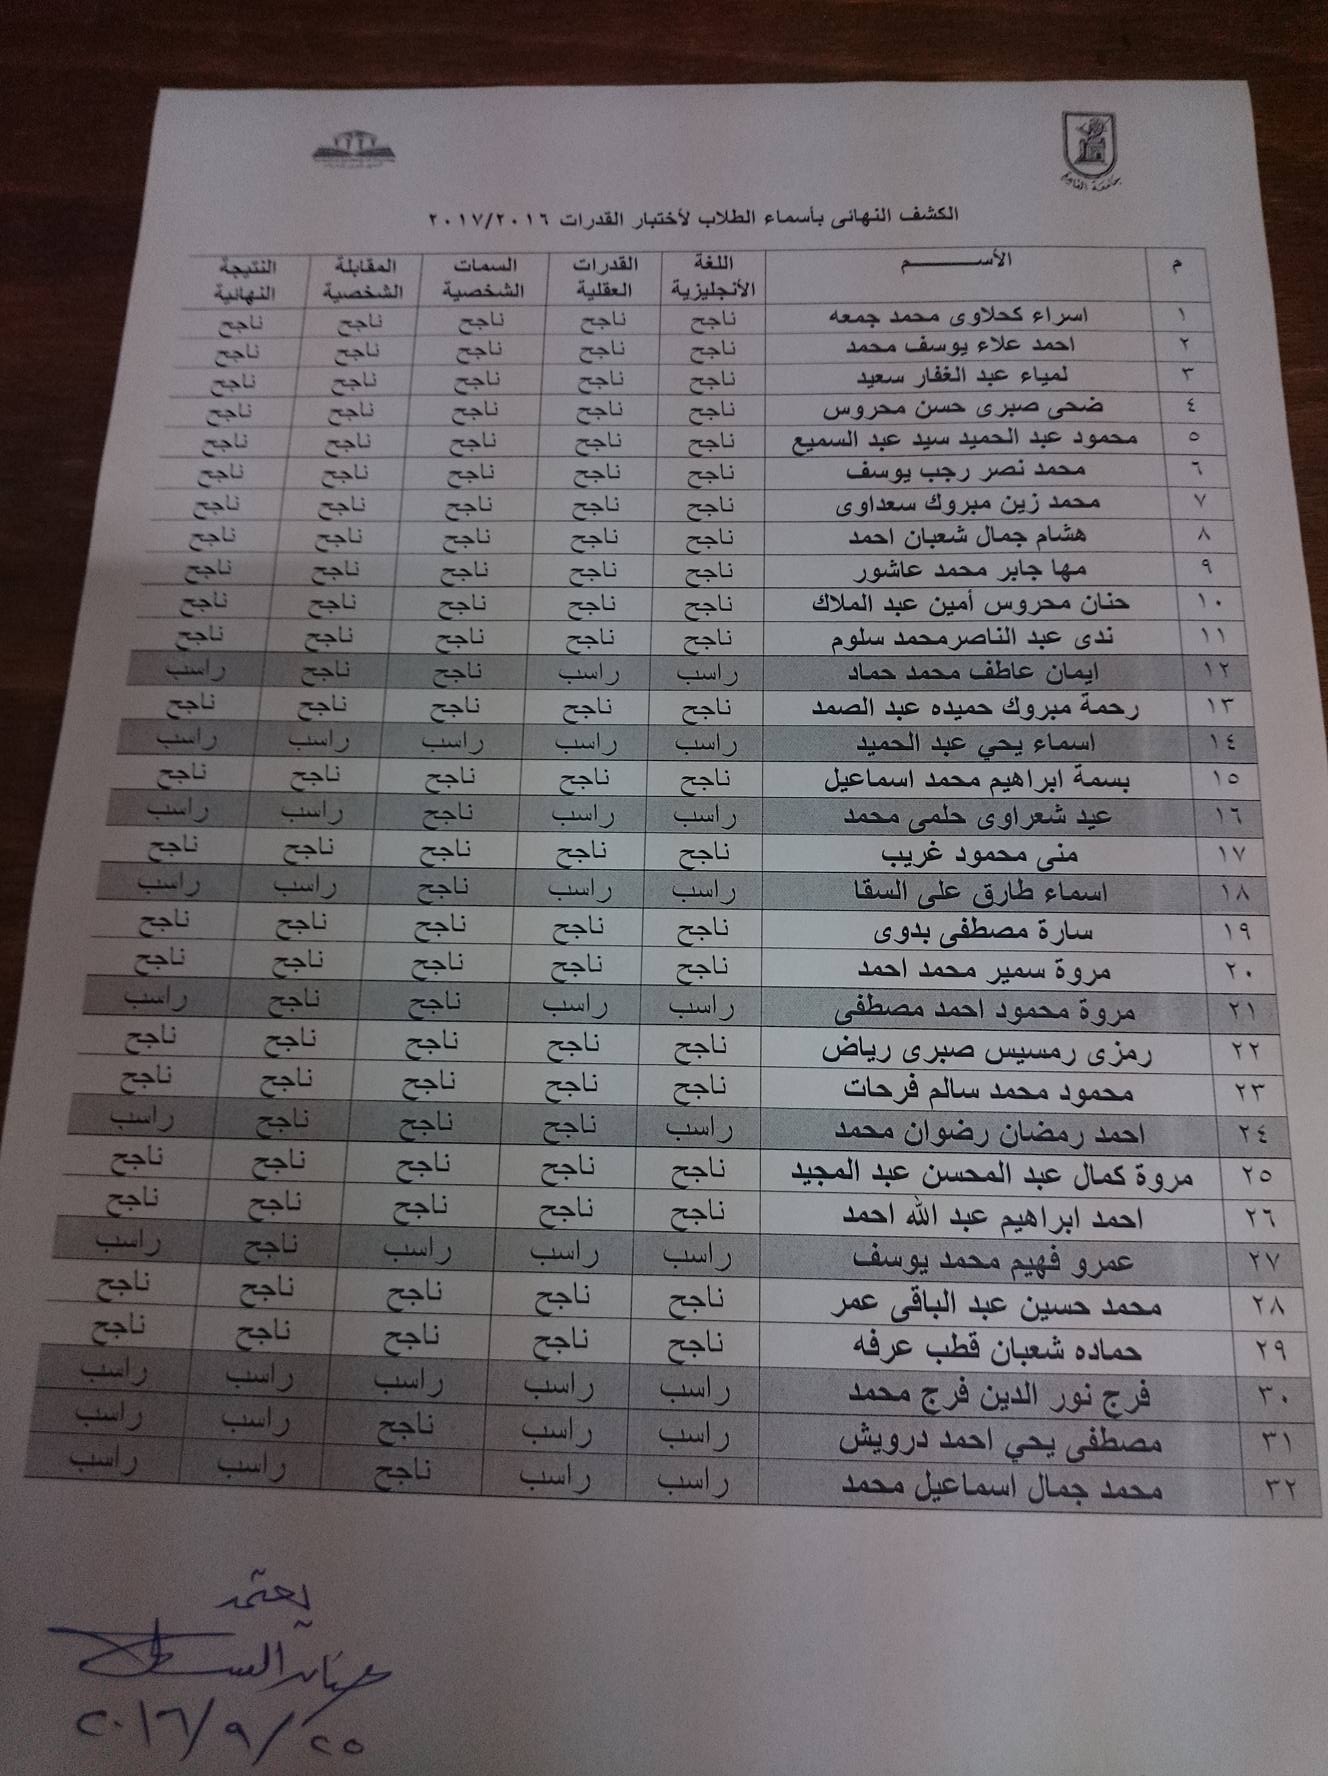 جامعة الفيوم
الكشف النهائى بأسماء الطلاب لأختبار القدرات ٢٠١٧/٢٠١٦
م الأســــــم اللغة الأنجليزية القدرات العقلية السمات الشخصية المقابلة الشخصية النتيجة النهائية
١ اسراء كحلاوى محمد جمعه ناجح ناجح ناجح ناجح ناجح
٢ احمد علاء يوسف محمد ناجح ناجح ناجح ناجح ناجح
٣ لمياء عبد الغفار سعيد ناجح ناجح ناجح ناجح ناجح
٤ ضحى صبرى حسن محروس ناجح ناجح ناجح ناجح ناجح
٥ محمود عبد الحميد سيد عبد السميع ناجح ناجح ناجح ناجح ناجح
٦ محمد نصر رجب يوسف ناجح ناجح ناجح ناجح ناجح
٧ محمد زين مبروك سعداوى ناجح ناجح ناجح ناجح ناجح
٨ هشام جمال شعبان احمد ناجح ناجح ناجح ناجح ناجح
٩ مها جابر محمد عاشور ناجح ناجح ناجح ناجح ناجح
١٠ حنان محروس أمين عبد الملاك ناجح ناجح ناجح ناجح ناجح
١١ ندى عبد الناصرمحمد سلوم ناجح ناجح ناجح ناجح ناجح
١٢ ايمان عاطف محمد حماد راسب راسب ناجح ناجح راسب
١٣ رحمة مبروك حميده عبد الصمد ناجح ناجح ناجح ناجح ناجح
١٤ اسماء يحي عبد الحميد راسب راسب راسب راسب راسب
١٥ بسمة ابراهيم محمد اسماعيل ناجح ناجح ناجح ناجح ناجح
١٦ عيد شعراوى حلمى محمد راسب راسب ناجح راسب راسب
١٧ منى محمود غريب ناجح ناجح ناجح ناجح ناجح
١٨ اسماء طارق على السقا راسب راسب ناجح راسب راسب
١٩ سارة مصطفى بدوى ناجح ناجح ناجح ناجح ناجح
٢٠ مروة سمير محمد احمد ناجح ناجح ناجح ناجح ناجح
٢١ مروة محمود احمد مصطفى راسب راسب ناجح ناجح راسب
٢٢ رمزى رمسيس صبرى رياض ناجح ناجح ناجح ناجح ناجح
٢٣ محمود محمد سالم فرحات ناجح ناجح ناجح ناجح ناجح
٢٤ احمد رمضان رضوان محمد راسب ناجح ناجح ناجح راسب
٢٥ مروة كمال عبد المحسن عبد المجيد ناجح ناجح ناجح ناجح ناجح
٢٦ احمد ابراهيم عبد الله احمد ناجح ناجح ناجح ناجح ناجح
٢٧ عمرو فهيم محمد يوسف راسب راسب راسب ناجح راسب
٢٨ محمد حسين عبد الباقى عمر ناجح ناجح ناجح ناجح ناجح
٢٩ حماده شعبان قطب عرفه ناجح ناجح ناجح ناجح ناجح
٣٠ فرج نور الدين فرج محمد راسب راسب راسب راسب راسب
٣١ مصطفى يحي احمد درويش راسب راسب ناجح راسب راسب
٣٢ محمد جمال اسماعيل محمد راسب راسب ناجح راسب راسب
يعتمد
٢٠١٦/٩/٢٥